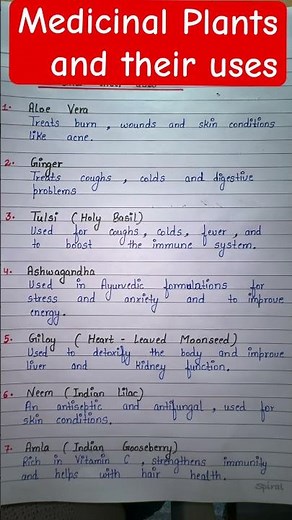 Medicinal Plants
and their uses
1. Aloe Vera
Treats burn, wounds and skin conditions
like acne.
2. Ginger
Treats coughs, colds and digestive
problems
3. Tulsi (Holy Basil)
Used for coughs, colds, fever, and
to boost the immune system.
4. Ashwagandha
Used in Ayurvedic formalations for
stress and anxiety and to improve
energy.
5. Giloy (Heart-Leaved Moonseed)
Used to detoxify the body and improve
liver and kidney function.
6. Neem (Indian Lilac)
An antiseptic and antifungal, used for
skin conditions.
7. Amla (Indian Gooseberry)
Rich in Vitamin C, strengthens immunity
and helps with hair health.
Spiral